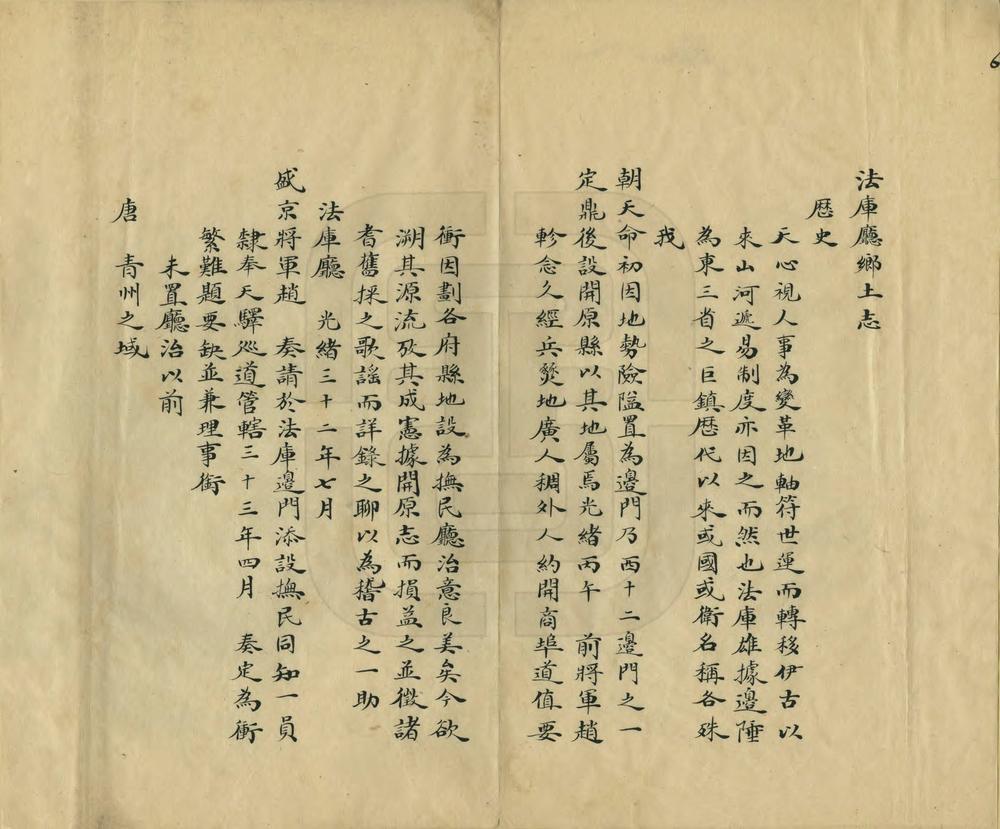 法庫廳鄉土志
歷史
天心視人事為變革地軸符世運而轉移伊古以
來山河遞易制度亦因之而然也法庫雄據邊陲
為東三省之巨鎮歷代以來或國或衛名稱各殊
我
朝天命初因地勢險隘置為邊門乃西十二邊門之一
定鼎後設開原縣以其地屬焉光緒丙午 前將軍趙
軫念久經兵燹地廣人稠外人約開商埠道值要
衝因劃各府縣地設為撫民廳治意良美矣今欲
溯其源流攷其成憲據開原志而損益之並徵諸
耆舊採之歌謠而詳錄之聊以為稽古之一助
法庫廳 光緒三十二年七月
盛京將軍趙 奏請於法庫邊門添設撫民同知一員
隸奉天驛巡道管轄三十三年四月 奏定為衝
繁難題要缺並兼理事銜
未置廳治以前
唐 青州之域
6